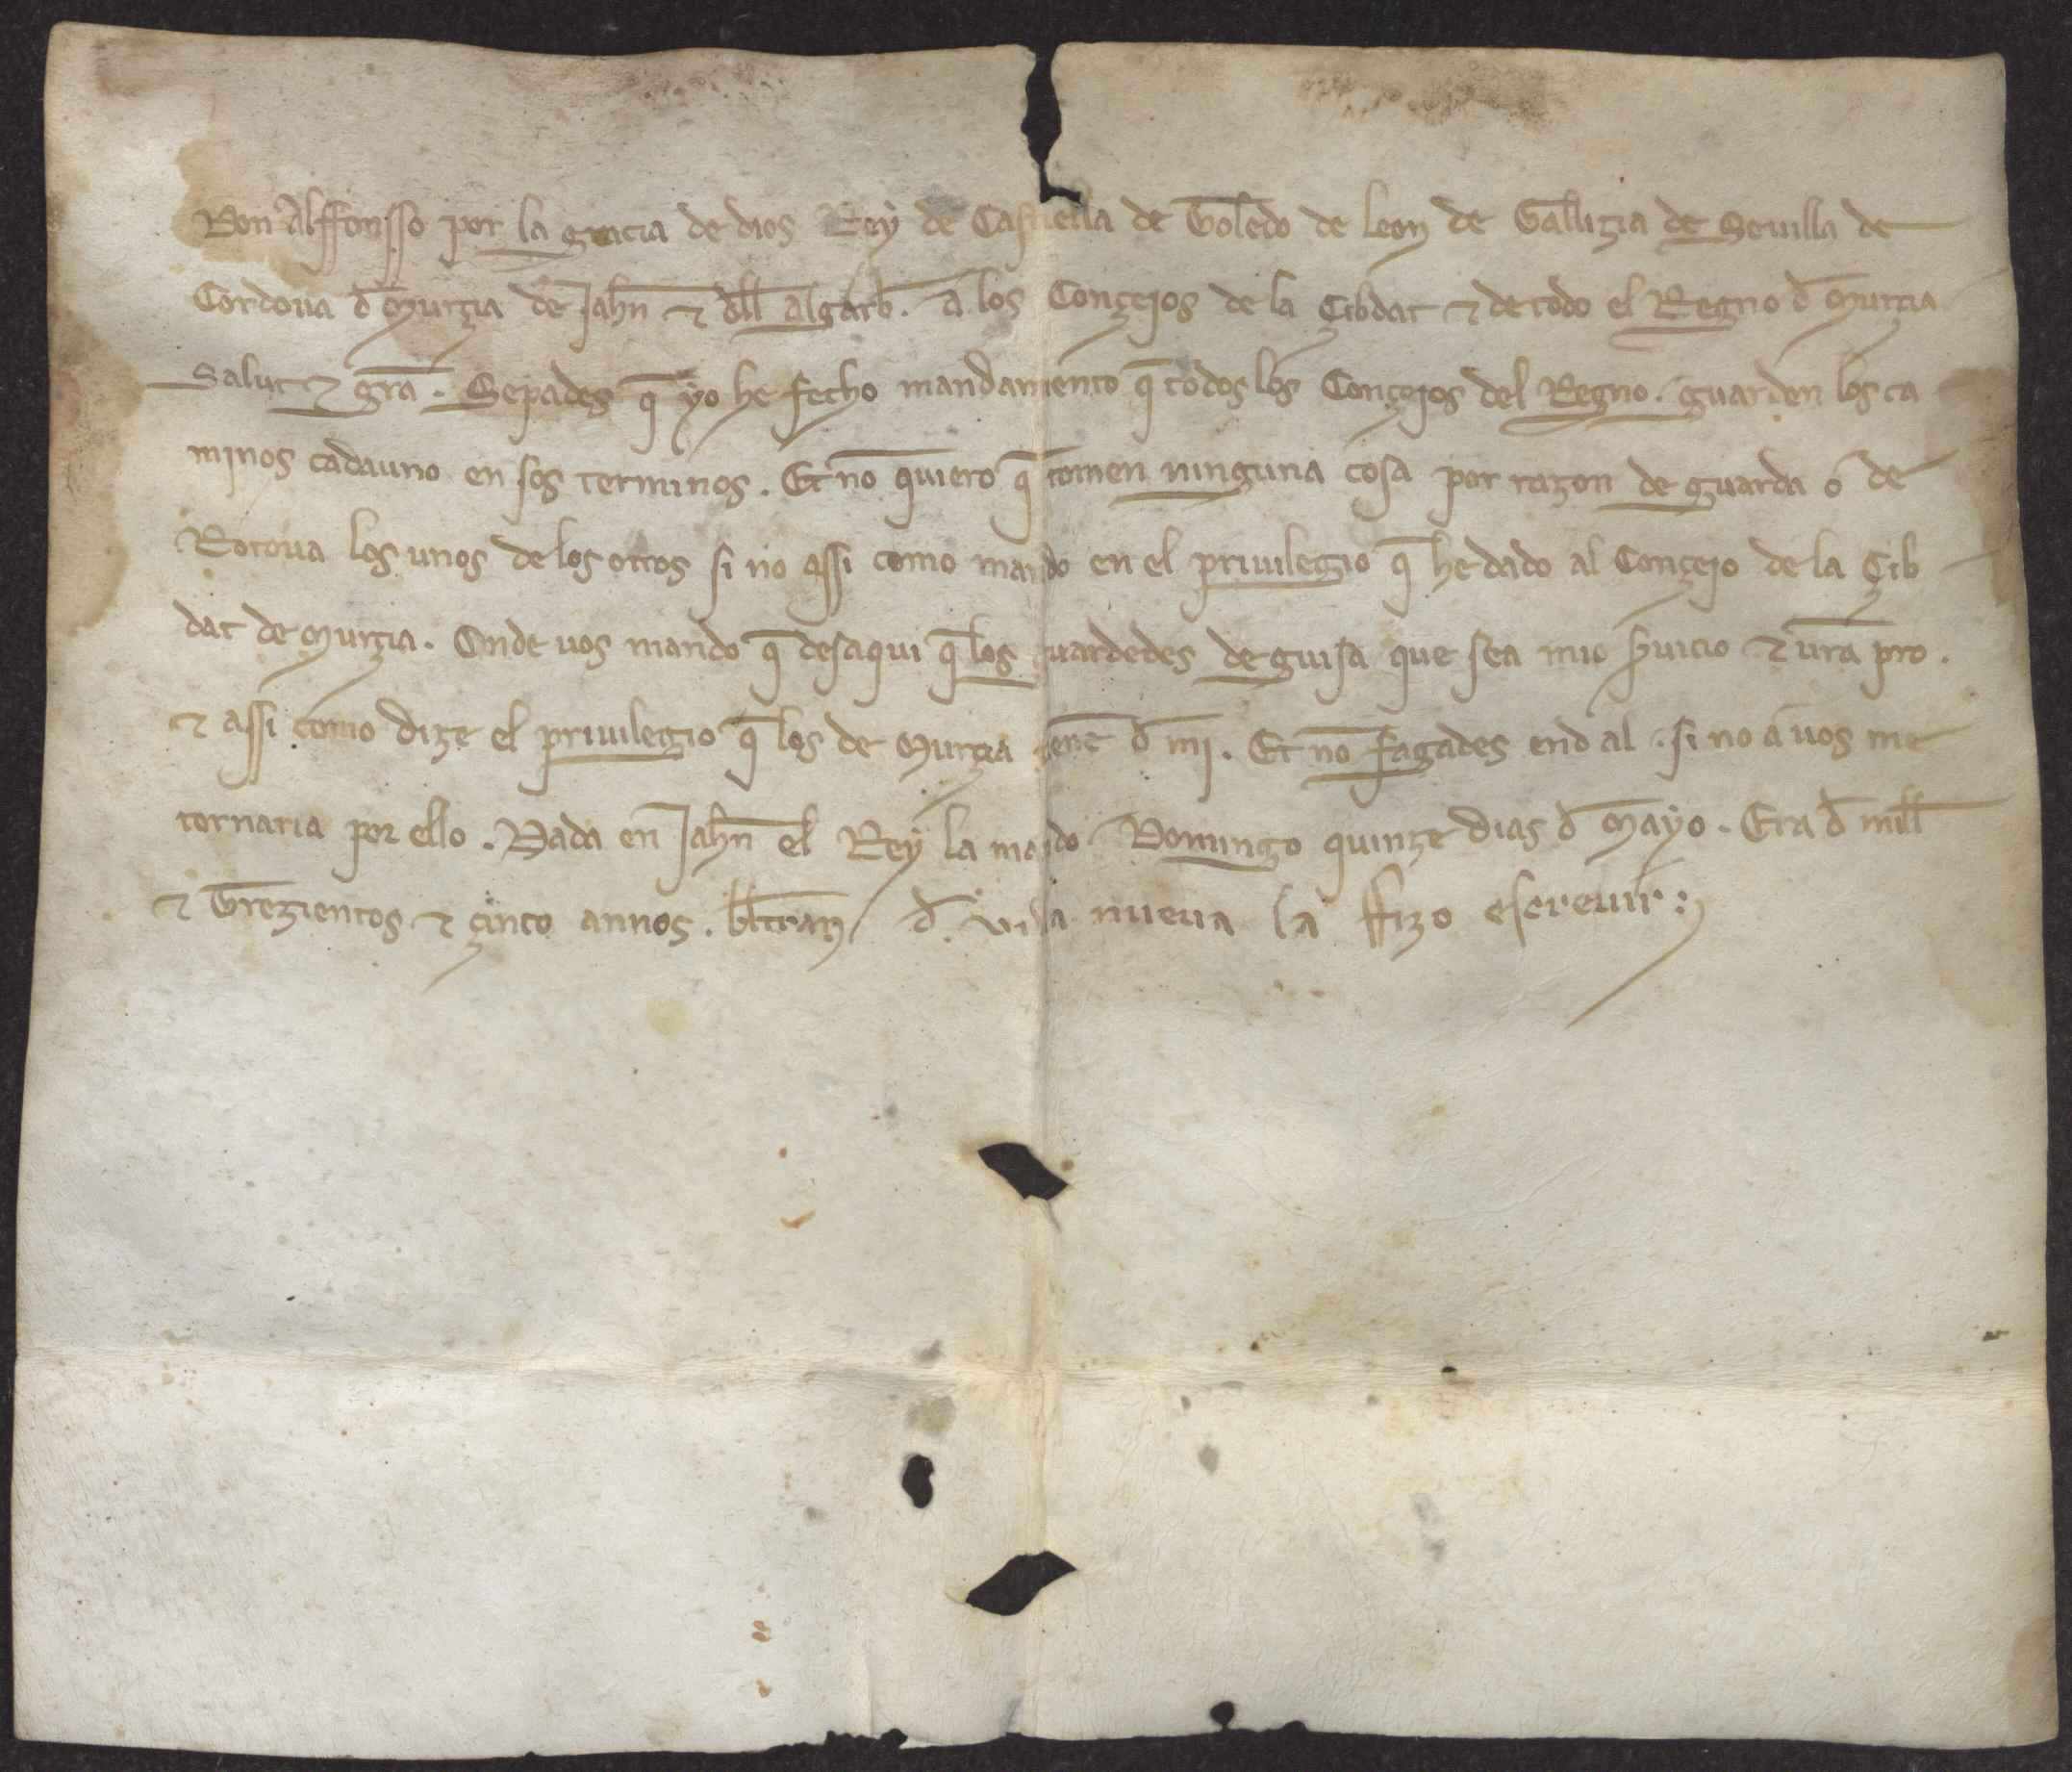 Don Alffonsso por la gracia de dios Rey de Castiella de Toledo de Leon de Gallizia de Seuilla de
Cordoua d̄ Murçia de Jahn̄ ⁊ dll̄ Algarb̄. A los Conçejos de la Çibdat ⁊ de todo el Regno d̄ Murçia
Salut ⁊ gr̄a. Sepades q̄ yo he fecho mandamiento q̄ todos los Conçejos del Regno. guarden los ca
minos cada uno en sos terminos. Et nō quiero q̄ tomen ninguna cosa por razon de guarda o de
Rotoua los unos de los otros si no assi como mando en el priuilegio q̄ he dado al Conçejo de la Çib
dat de Murçia. Onde uos mando q̄ desaqui q̄ los guardedes de guisa que sea mio s̄uicio ⁊ ur̄a pro.
⁊ assi como dize el priuilegio q̄ los de Murçia tienē d̄ mj. Et nō fagades end al. si no a uos me
tornaria por ello. Dada en Jahn̄ el Rey la mando Domingo quinze dias d̄ Mayo. Era d̄ mill̄
⁊ Trezientos ⁊ çinco annos. bl̄tran d̄ uilla nueua la ffizo escreuir: